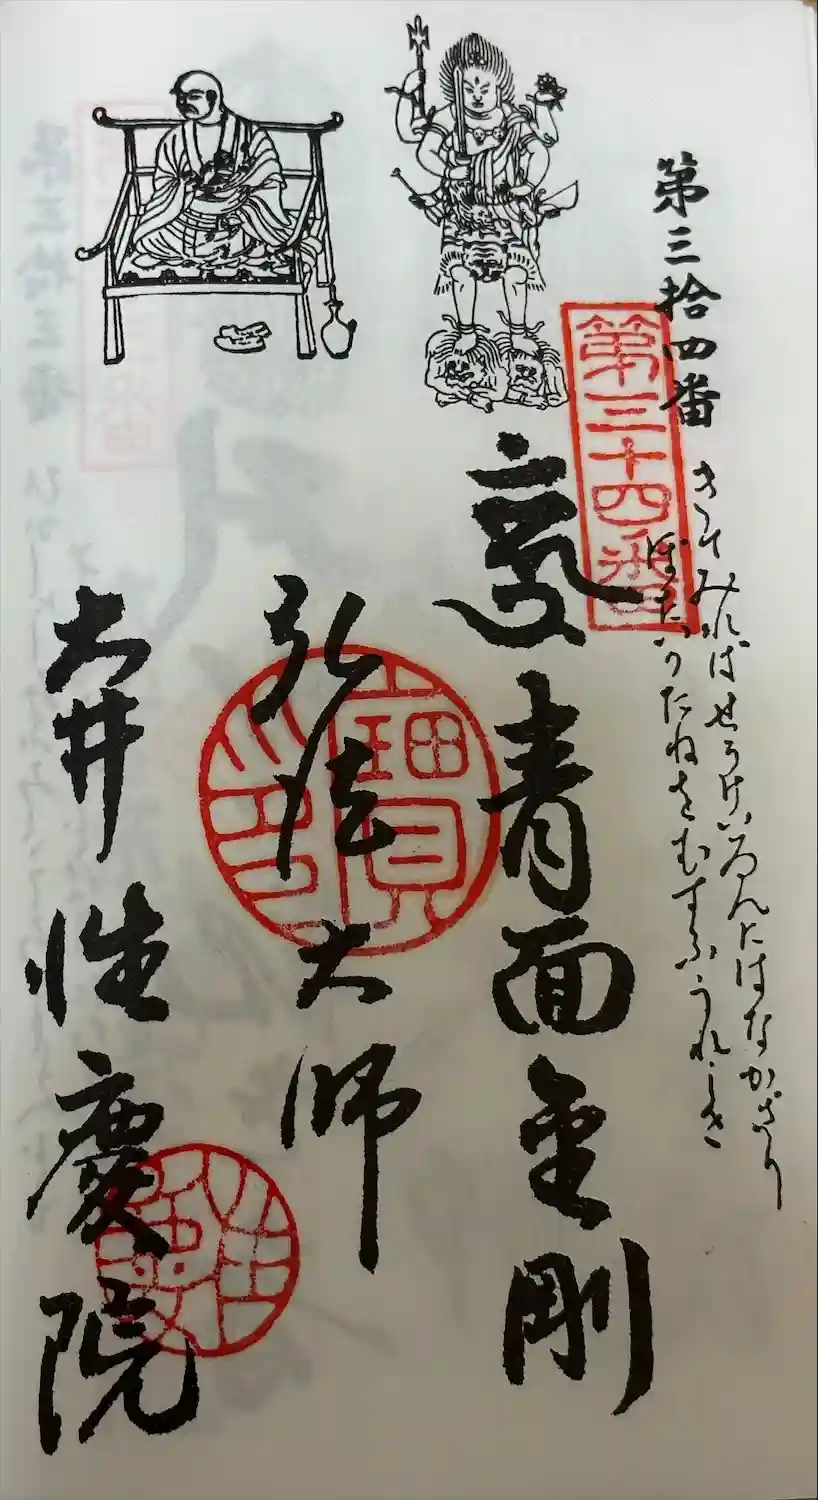 第三拾四番
きてみればせうけいゐんにはなかざり
ぼたいのたねをむすふうれしき
第三十四番
青面金剛
弘法大師
大井性慶院